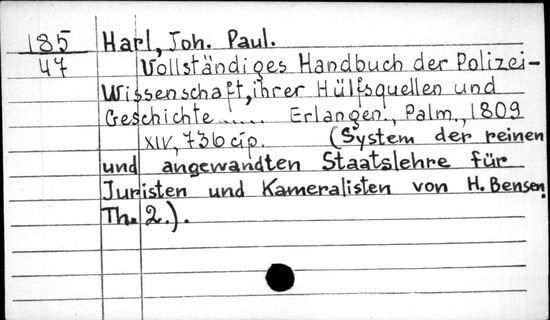 185 Harl, Joh. Paul.
47 Vollständiges Handbuch der Polizei-
Wissenschaft, ihrer Hülfsquellen und
Geschichte ..... Erlangen., Palm., 1809
XIV, 736 cip. (System der reinen
und angewandten Staatslehre für
Juristen und Kameralisten von H. Bensen.
Th. 2.).